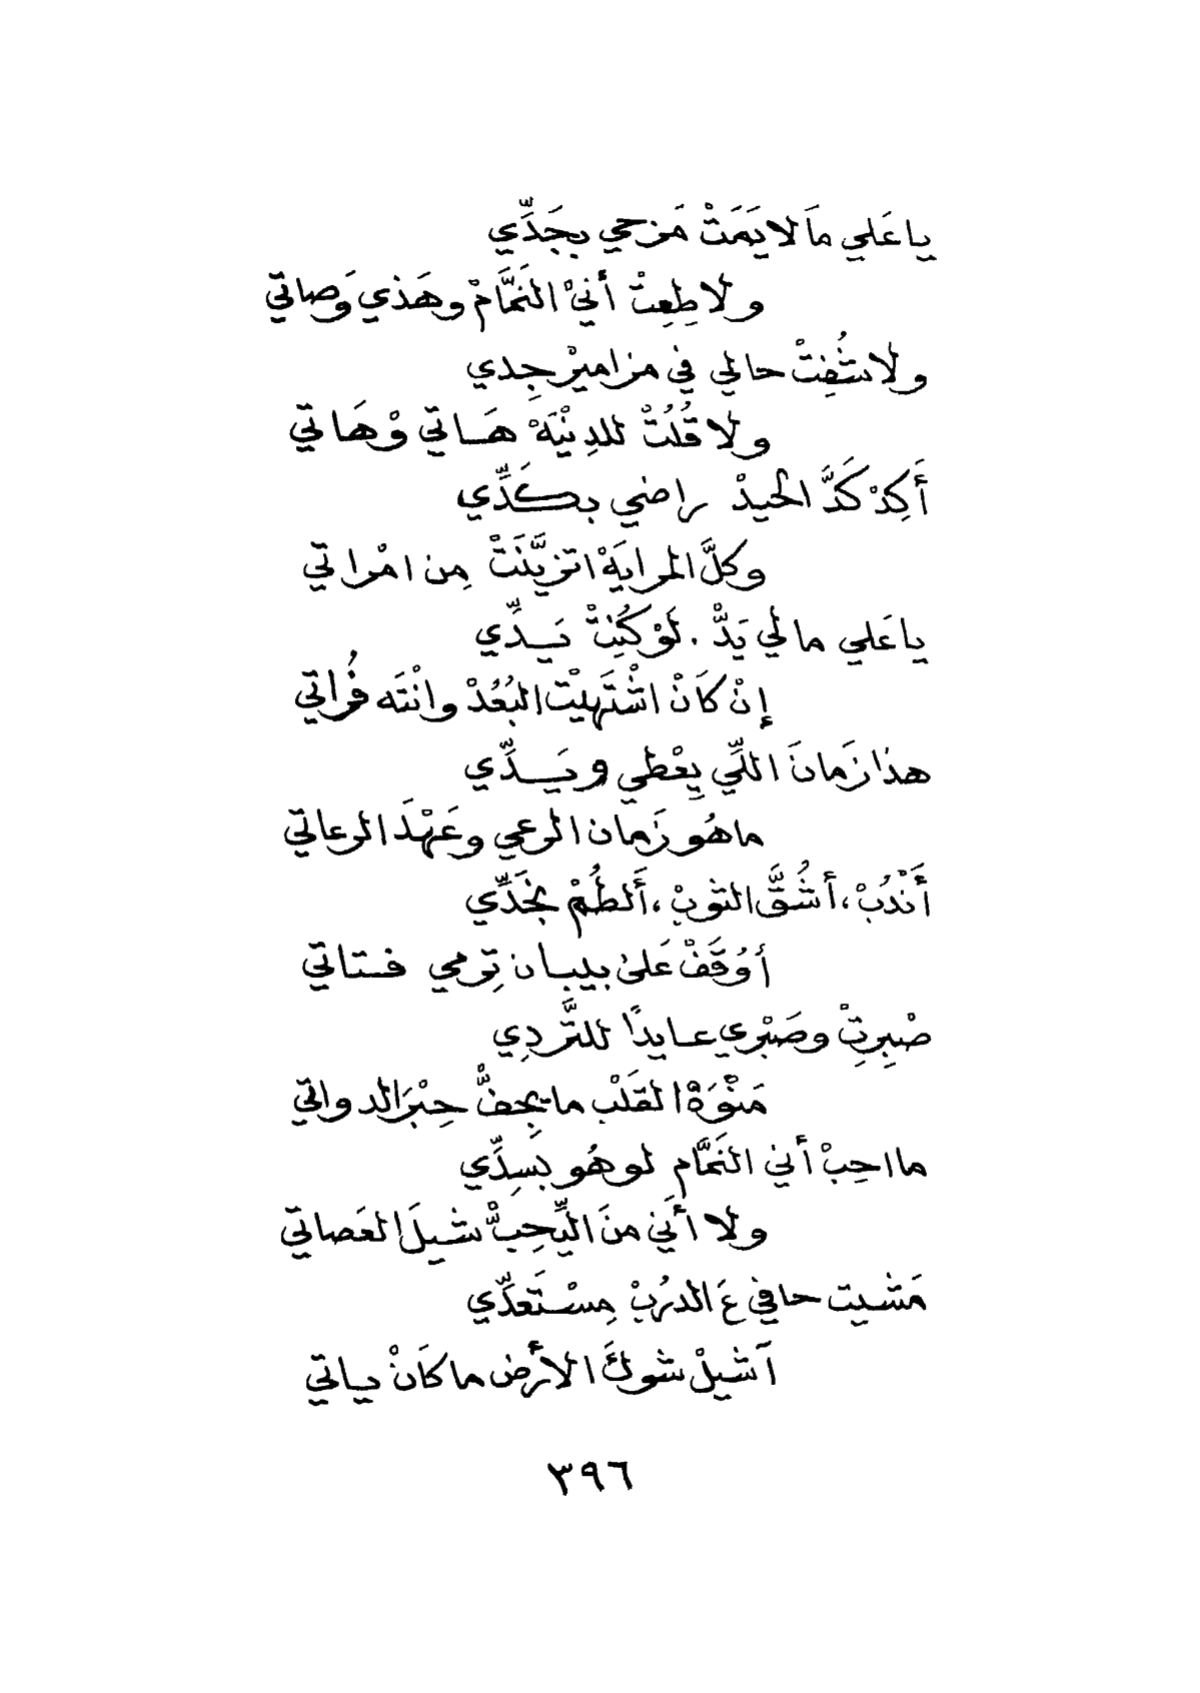 يا عَلي مَا لا يَمَتْ مَزحي بجَدِّي
ولا طِعِتْ أنيْ النَمَّامْ وهَذي وَصاتي
ولا شُفِتْ حالي في مزاميرْ جِدي
ولا قُلُتْ للدِنْيَهْ هَاتي وْهَاتي
أَكِدْ كَدَّ الحيدْ راضي بكَدِّي
وكلَّ المرايَهْ اتزيَّنَتْ مِن امْراتي
يا عَلي مالي يَدْ . لَوْ كُنِتْ يَدِّي
إنْ كَانْ اشْتَهيْت البُعُدْ وانْتَه فُراتي
هذا زَمانَ اللّي يِعْطي ويَدِّي
ما هُو زَمان الرعي وعَهْدَ الرعاتي
أَنْدُبْ، أشُقَّ الثوبْ، أَلطُمْ بخَدِّي
أوُقَفْ عَلى بيبان تِرمي فتاتي
صْبِرِتْ وصَبْري عايدًا للتَّردِي
مَنْوَةْ القَلَبْ ما يجفُّ حِبْرَ الدواتي
ما احِبْ أني النَمَّام لو هُو بَسِدِّي
ولا أنَي منَ الّيِّحِبُّ شيلَ العَصاتي
مَشيت حافي عَ الدرُبْ مِسْتَعدِّي
آشيلْ شوكَ الأرض ما كَانْ ياتي
٣٩٦